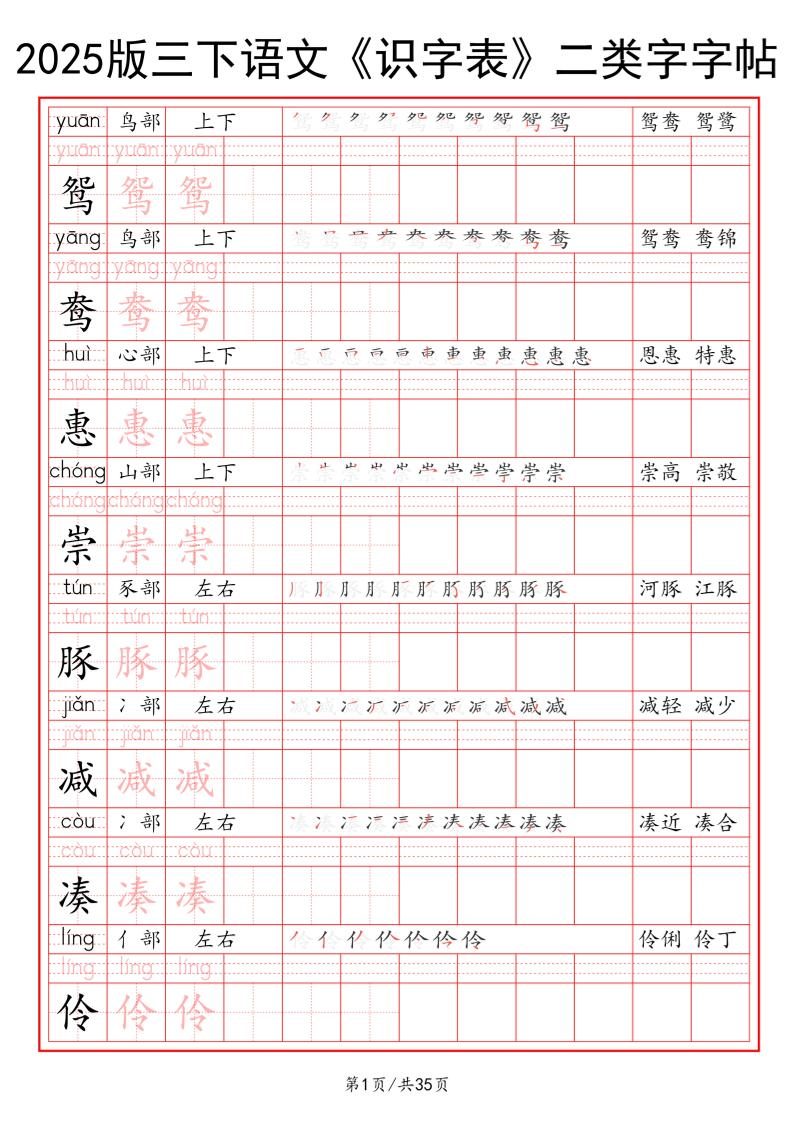 2025版三下语文《识字表》二类字字帖
yuān 鸟部 上下 鸳鸯 鸳鹭
yuān yuān yuān
鸳 鸳 鸳
yāng 鸟部 上下 鸳鸯 鸯锦
yāng yāng yāng
鸯 鸯 鸯
huì 心部 上下 恩惠 特惠
huì huì huì
惠 惠 惠
chóng 山部 上下 崇高 崇敬
chóng chóng chóng
崇 崇 崇
tún 豕部 左右 河豚 江豚
tún tún tún
豚 豚 豚
jiǎn 冫部 左右 减轻 减少
jiǎn jiǎn jiǎn
减 减 减
còu 冫部 左右 凑近 凑合
còu còu còu
凑 凑 凑
líng 亻部 左右 伶俐 伶丁
líng líng líng
伶 伶 伶
第1页/共35页